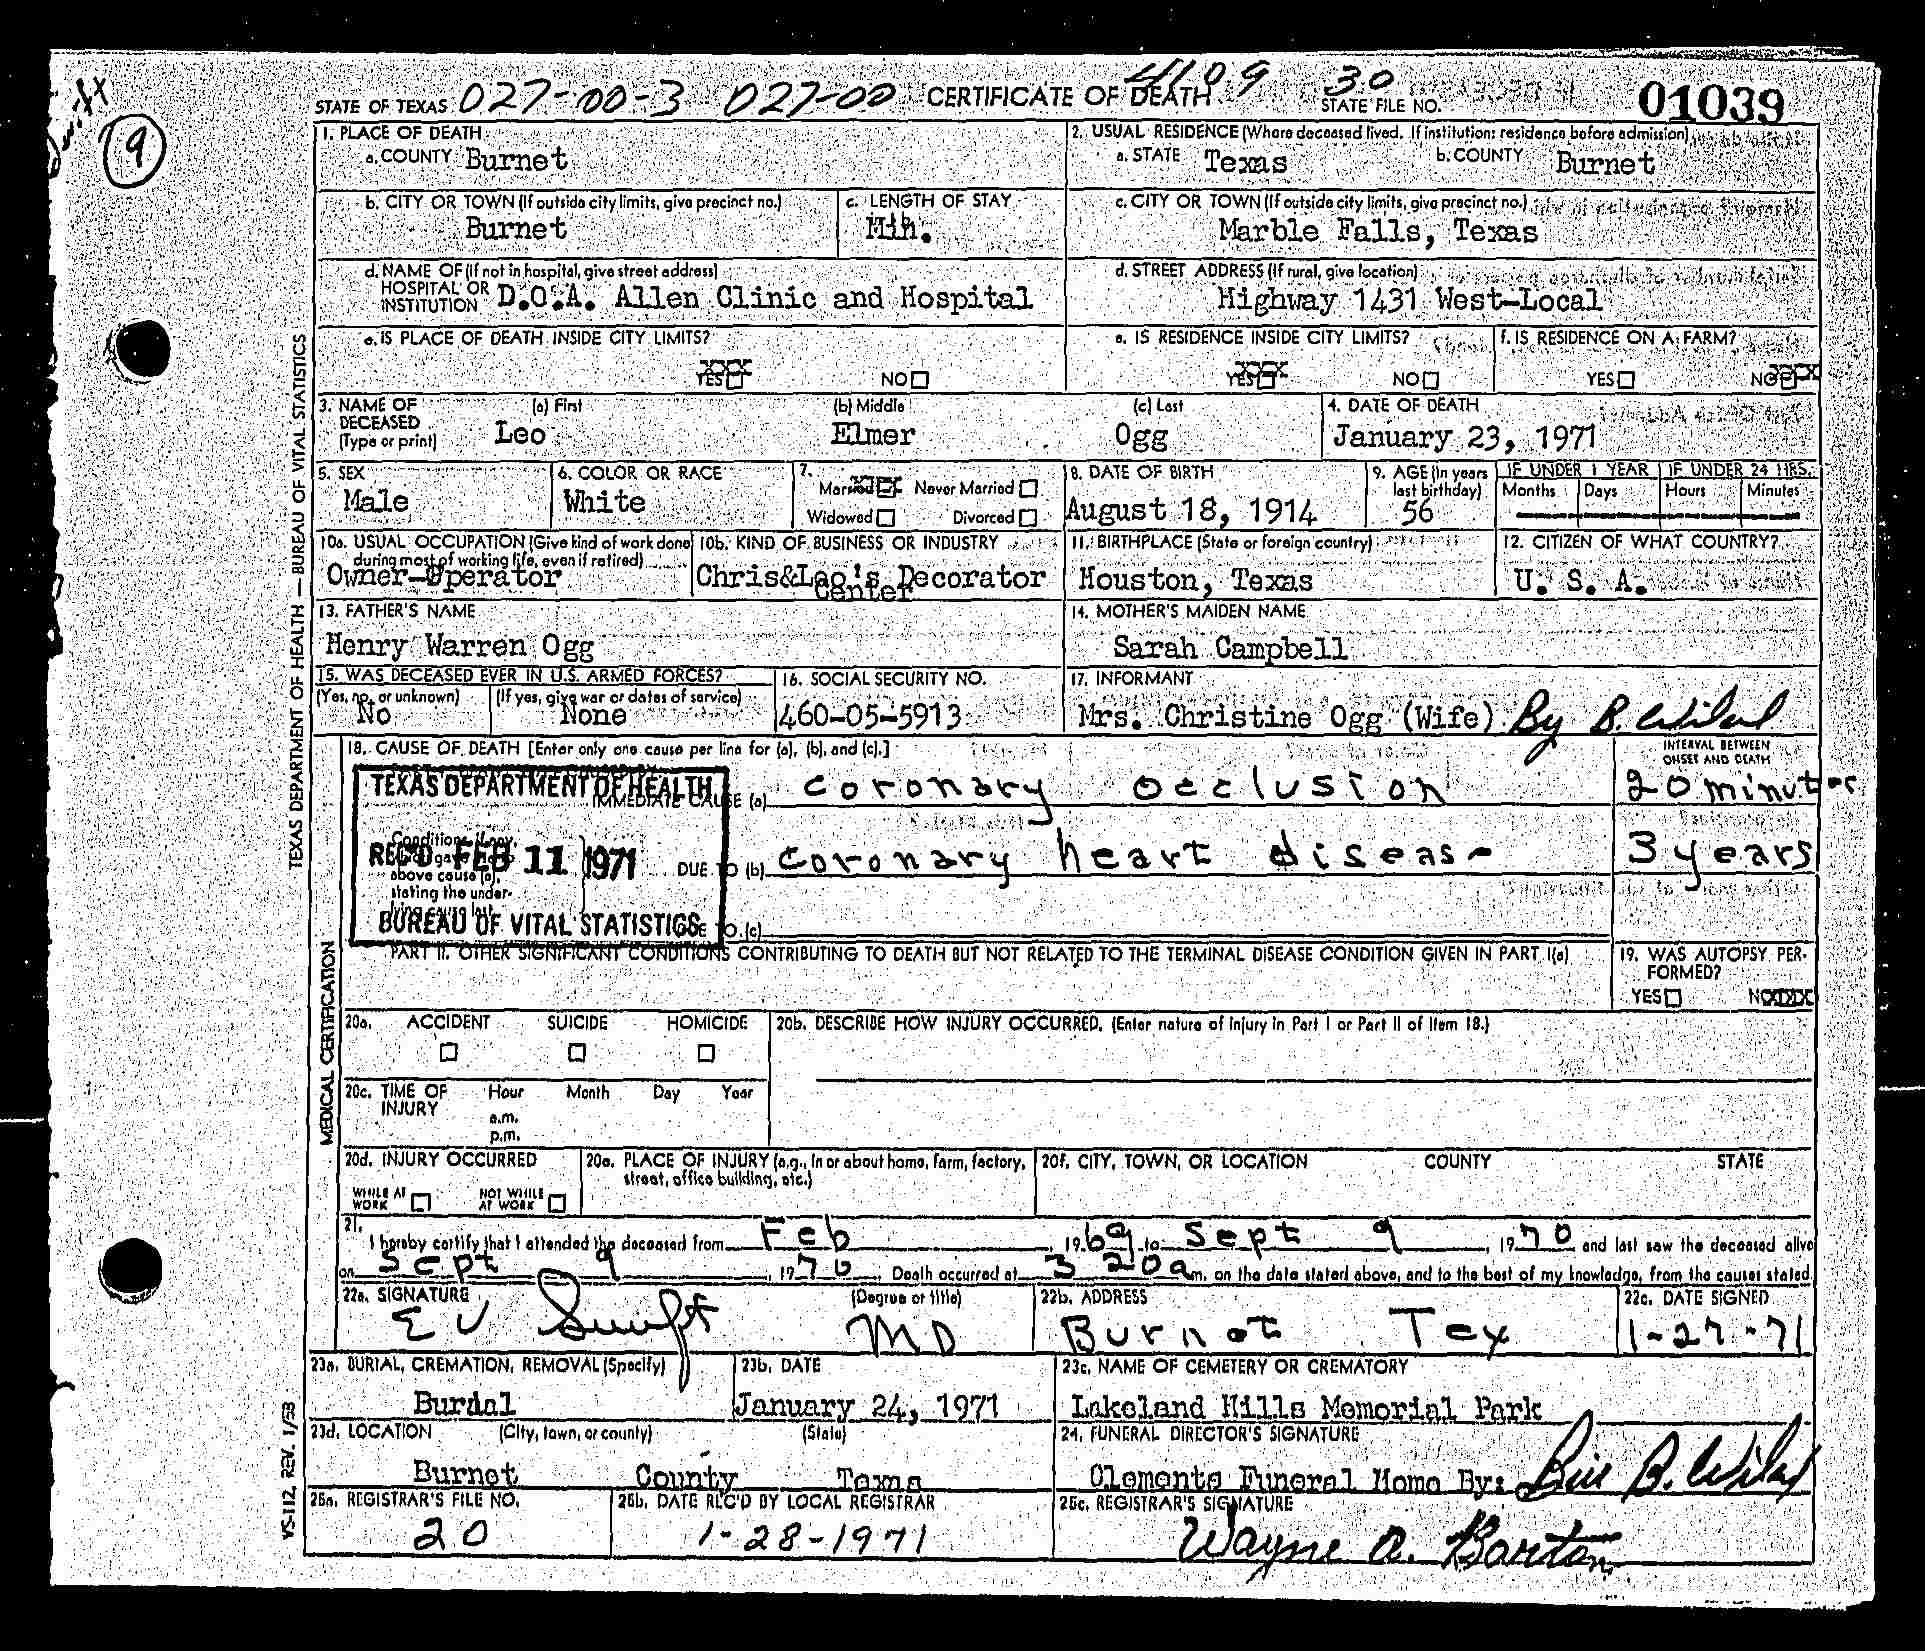 STATE OF TEXAS 027-00-3 027-00 CERTIFICATE OF DEATH 4109 30 STATE FILE NO. 01039
9
1. PLACE OF DEATH
a. COUNTY Burnet
2. USUAL RESIDENCE (Where deceased lived. If institution: residence before admission)
a. STATE Texas b. COUNTY Burnet
b. CITY OR TOWN (If outside city limits, give precinct no.)
Burnet
c. LENGTH OF STAY
Min.
c. CITY OR TOWN (If outside city limits, give precinct no.)
Marble Falls, Texas
d. NAME OF (If not in hospital, give street address)
HOSPITAL OR
INSTITUTION D.O.A. Allen Clinic and Hospital
d. STREET ADDRESS (If rural, give location)
Highway 1431 West-Local
e. IS PLACE OF DEATH INSIDE CITY LIMITS?
YES XXX NO
e. IS RESIDENCE INSIDE CITY LIMITS?
YES XXX NO
f. IS RESIDENCE ON A FARM?
YES NO XXX
3. NAME OF DECEASED (Type or print)
(a) First (b) Middle (c) Last
Leo Elmer Ogg
4. DATE OF DEATH
January 23, 1971
5. SEX
Male
6. COLOR OR RACE
White
7. Married Never Married
Widowed Divorced
8. DATE OF BIRTH
August 18, 1914
9. AGE (In years last birthday)
56
IF UNDER 1 YEAR IF UNDER 24 HRS.
Months Days Hours Minutes
10a. USUAL OCCUPATION (Give kind of work done during most of working life, even if retired)
Owner-Operator
10b. KIND OF BUSINESS OR INDUSTRY
Chris&Leo's Decorator
Center
11. BIRTHPLACE (State or foreign country)
Houston, Texas
12. CITIZEN OF WHAT COUNTRY?
U. S. A.
13. FATHER'S NAME
Henry Warren Ogg
14. MOTHER'S MAIDEN NAME
Sarah Campbell
15. WAS DECEASED EVER IN U.S. ARMED FORCES?
(Yes, no, or unknown) (If yes, give war or dates of service)
No None
16. SOCIAL SECURITY NO.
460-05-5913
17. INFORMANT
Mrs. Christine Ogg (Wife) By B. Wilad
18. CAUSE OF DEATH [Enter only one cause per line for (a), (b), and (c).]
INTERVAL BETWEEN
ONSET AND DEATH
IMMEDIATE CAUSE (a) coronary occlusion 20 minutes
Conditions, if any,
above cause (a),
stating the under-
lying cause last.
DUE TO (b) coronary heart disease 3 years
DUE TO (c)
TEXAS DEPARTMENT OF HEALTH
REC'D FEB 11 1971
BUREAU OF VITAL STATISTICS
PART II. OTHER SIGNIFICANT CONDITIONS CONTRIBUTING TO DEATH BUT NOT RELATED TO THE TERMINAL DISEASE CONDITION GIVEN IN PART I(a)
19. WAS AUTOPSY PER-
FORMED?
YES NO XXX
20a. ACCIDENT SUICIDE HOMICIDE
20b. DESCRIBE HOW INJURY OCCURRED. (Enter nature of injury in Part I or Part II of Item 18.)
20c. TIME OF INJURY Hour Month Day Year
a.m.
p.m.
20d. INJURY OCCURRED
WHILE AT WORK NOT WHILE AT WORK
20e. PLACE OF INJURY (e.g., in or about home, farm, factory,
street, office building, etc.)
20f. CITY, TOWN, OR LOCATION COUNTY STATE
21.
I hereby certify that I attended the deceased from Feb , 1969 to Sept 9 , 1970 and last saw the deceased alive
on Sept 9 , 1970. Death occurred at 3 20 a m. on the date stated above, and to the best of my knowledge, from the causes stated
22a. SIGNATURE (Degree or title)
E V Swift MD
22b. ADDRESS
Burnet Tex
22c. DATE SIGNED
1-27-71
23a. BURIAL, CREMATION, REMOVAL (Specify)
Burial
23b. DATE
January 24, 1971
23c. NAME OF CEMETERY OR CREMATORY
Lakeland Hills Memorial Park
23d. LOCATION (City, town, or county) (State)
Burnet County Texas
24. FUNERAL DIRECTOR'S SIGNATURE
Clements Funeral Home By:
25a. REGISTRAR'S FILE NO.
20
25b. DATE REC'D BY LOCAL REGISTRAR
1-28-1971
25c. REGISTRAR'S SIGNATURE
Wayne A. Barton
TEXAS DEPARTMENT OF HEALTH — BUREAU OF VITAL STATISTICS
MEDICAL CERTIFICATION
VS-112 REV. 1/58